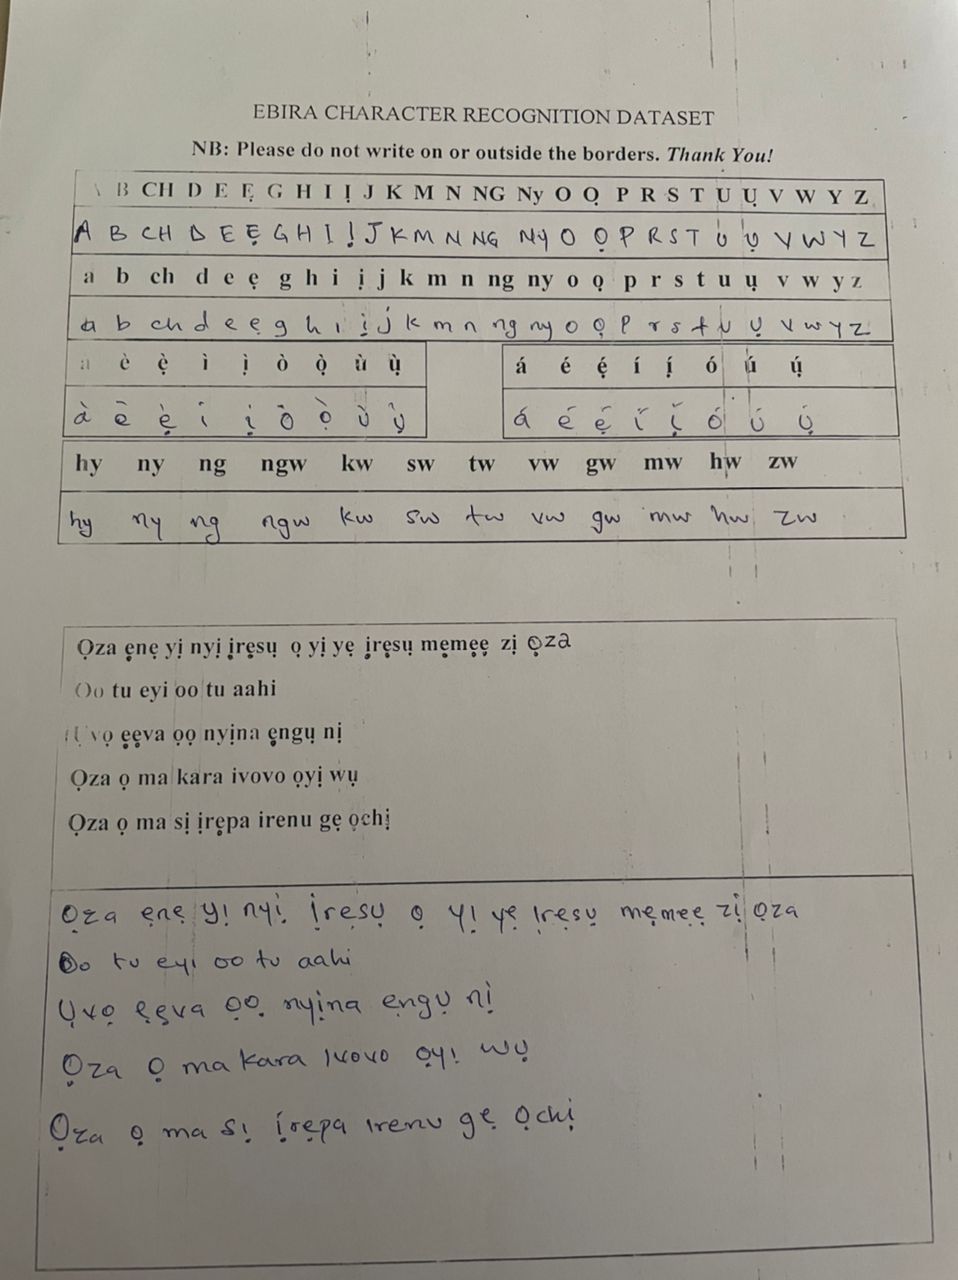 EBIRA CHARACTER RECOGNITION DATASET
NB: Please do not write on or outside the borders. Thank You!
A B CH D E Ẹ G H I Ị J K M N NG Ny O Ọ P R S T U Ụ V W Y Z
A B CH D E Ẹ G H I Ị J K M N NG NY O Ọ P R S T U Ụ V W Y Z
a b ch d e ẹ g h i ị j k m n ng ny o ọ p r s t u ụ v w y z
a b ch d e ẹ g h i ị j k m n ng ny o ọ p r s t u ụ v w y z
a è ẹ̀ ì ị̀ ò ọ̀ ù ụ̀ á é ẹ́ í ị́ ó ú ụ́
à è ẹ̀ ì ị̀ ò ọ̀ ù ụ̀ á é ẹ́ í ị́ ó ú ụ́
hy ny ng ngw kw sw tw vw gw mw hw zw
hy ny ng ngw kw sw tw vw gw mw hw zw
Ọza ẹnẹ yị nyị ịrẹsụ ọ yị yẹ ịrẹsụ mẹmẹẹ zị ọza
Oo tu eyi oo tu aahi
Ụvọ ẹẹva ọọ nyịna ẹngụ nị
Ọza ọ ma kara ivovo ọyị wụ
Ọza ọ ma sị ịrẹpa irenu gẹ ọchị
Ọza ẹnẹ yị nyị ịrẹsụ ọ yị yẹ ịrẹsụ mẹmẹẹ zị ọza
Oo tu eyi oo tu aahi
Ụvọ ẹẹva ọọ nyịna ẹngụ nị
Ọza ọ ma kara ivovo ọyị wụ
Ọza ọ ma sị ịrẹpa irenu gẹ ọchị